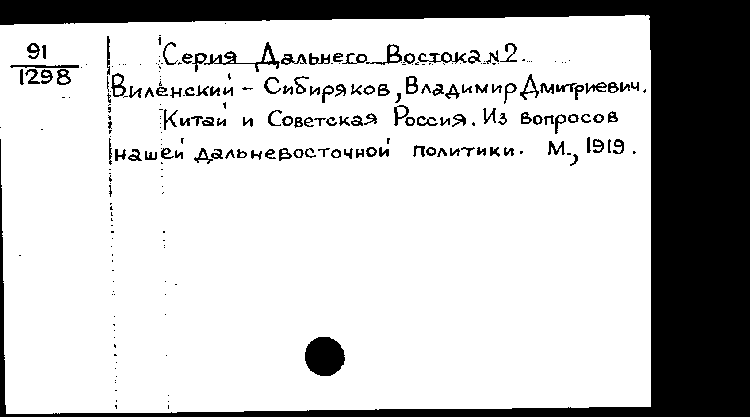 91
1298
Серия Дальнего Востока №2.
Виленский - Сибиряков, Владимир Дмитриевич.
Китай и Советская Россия. Из вопросов
нашей дальневосточной политики. М., 1919.